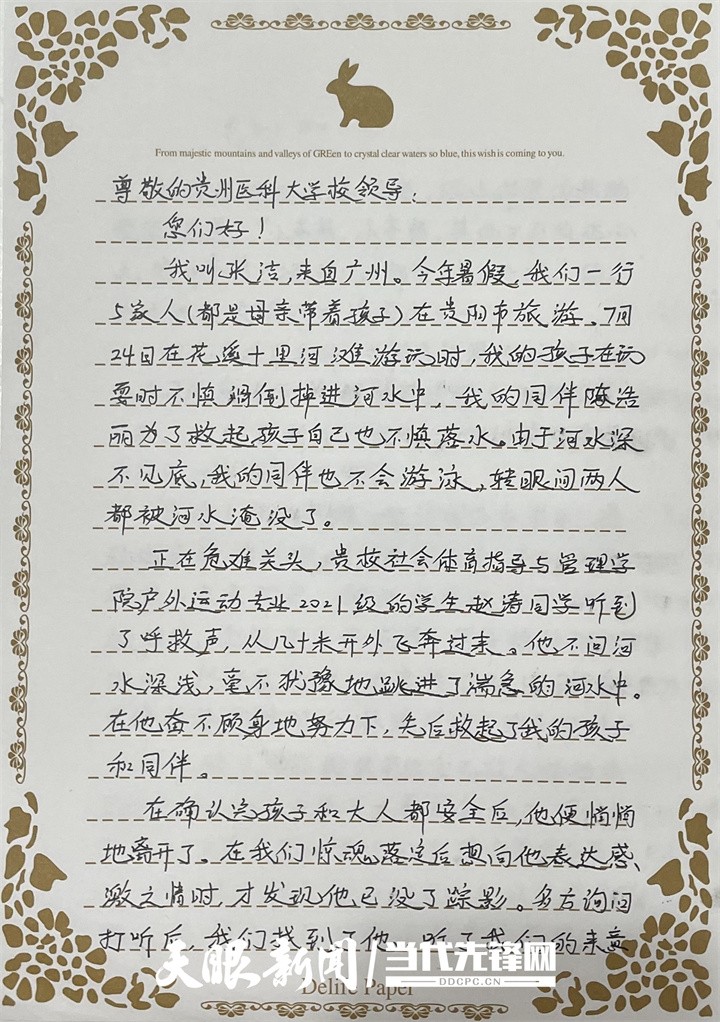 From majestic mountains and valleys of GREen to crystal clear waters so blue, this wish is coming to you.
尊敬的贵州医科大学校领导：
您们好！
我叫张洁，来自广州。今年暑假，我们一行
5家人（都是母亲带着孩子）在贵阳市旅游。7月
24日在花溪十里河滩游玩时，我的孩子在玩
耍时不慎滑倒掉进河水中，我的同伴陈浩
丽为了救起孩子自己也不慎落水。由于河水深
不见底，我的同伴也不会游泳，转眼间两人
都被河水淹没了。
正在危难关头，贵校社会体育指导与管理学
院户外运动专业2021级的学生赵涛同学听到
了呼救声，从几十米开外飞奔过来。他不问河
水深浅，毫不犹豫地跳进了湍急的河水中。
在他奋不顾身地努力下，先后救起了我的孩子
和同伴。
在确认完孩子和大人都安全后，他便悄悄
地离开了。在我们惊魂落定后想向他表达感
激之情时，才发现他已没了踪影。多方询问
打听后，我们找到了他，听了我们的来意
天眼新闻/当代先锋网
DDCPC.CN
Delife Paper